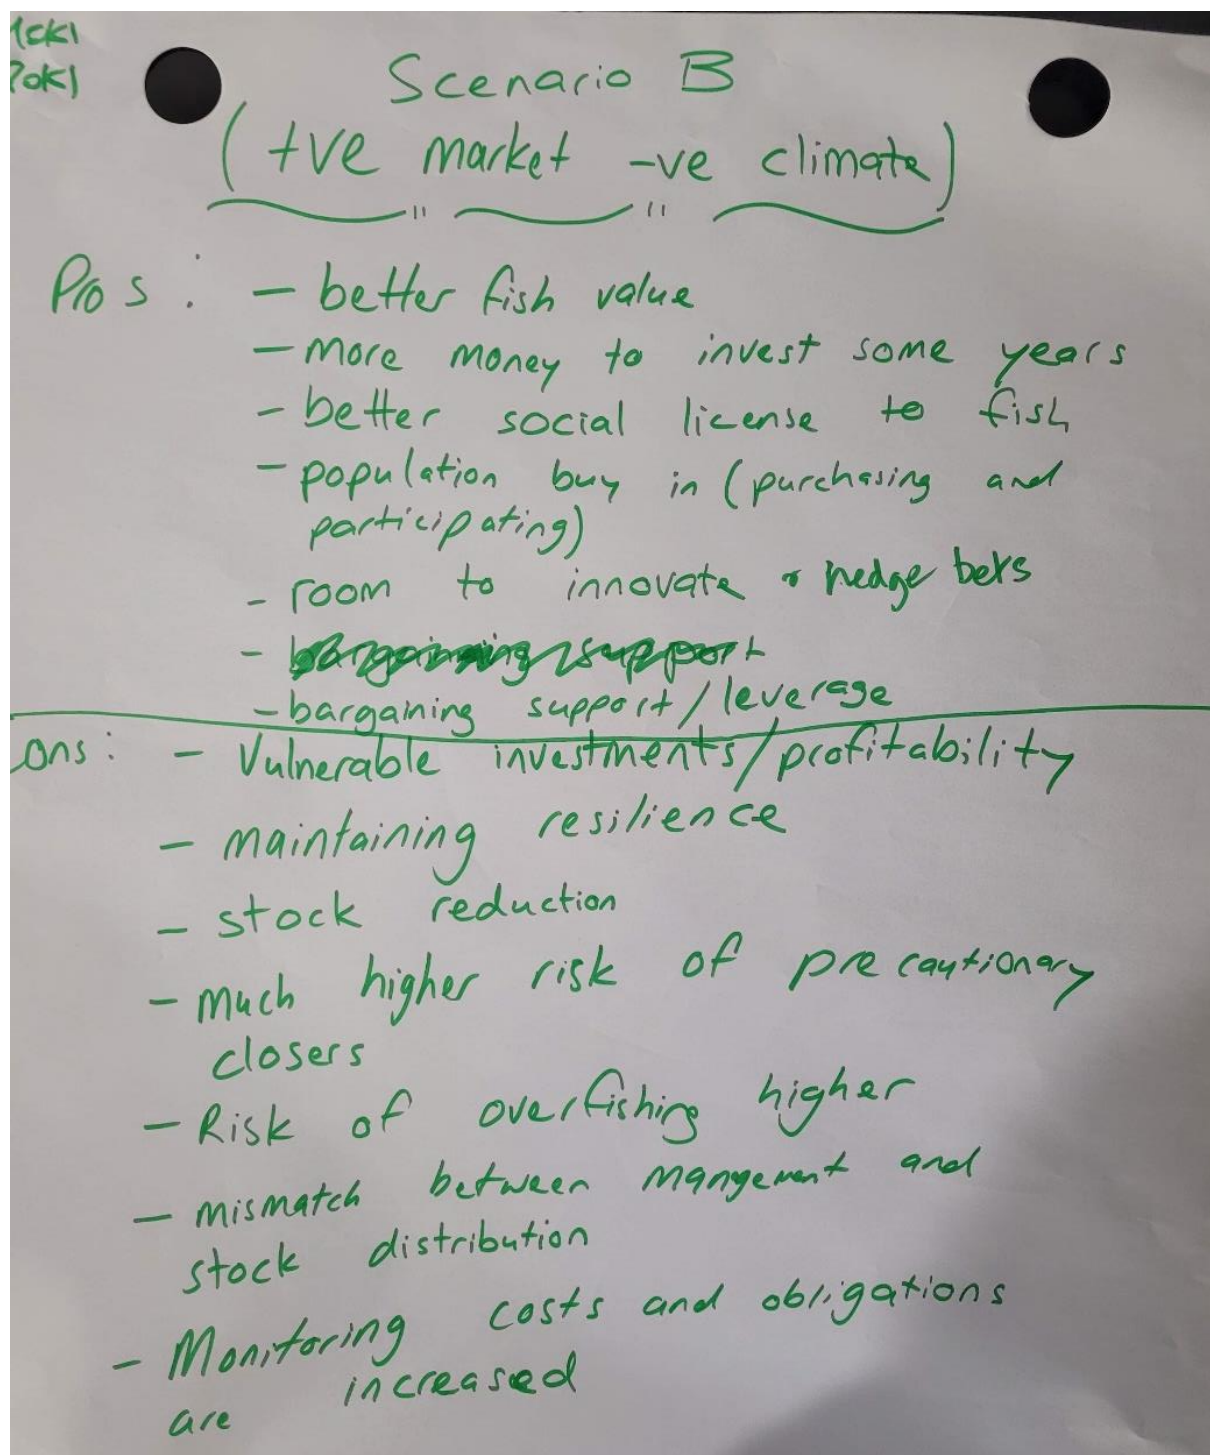 Scenario B
(+ve market -ve climate)
Pros: - better fish value
- more money to invest some years
- better social license to fish
- population buy in (purchasing and
participating)
- room to innovate + hedge bets
- bargaining support
- bargaining support/leverage
ons: - Vulnerable investments/profitability
- maintaining resilience
- stock reduction
- much higher risk of precautionary
closers
- Risk of overfishing higher
- mismatch between mangement and
stock distribution
- Monitoring costs and obligations
are increased